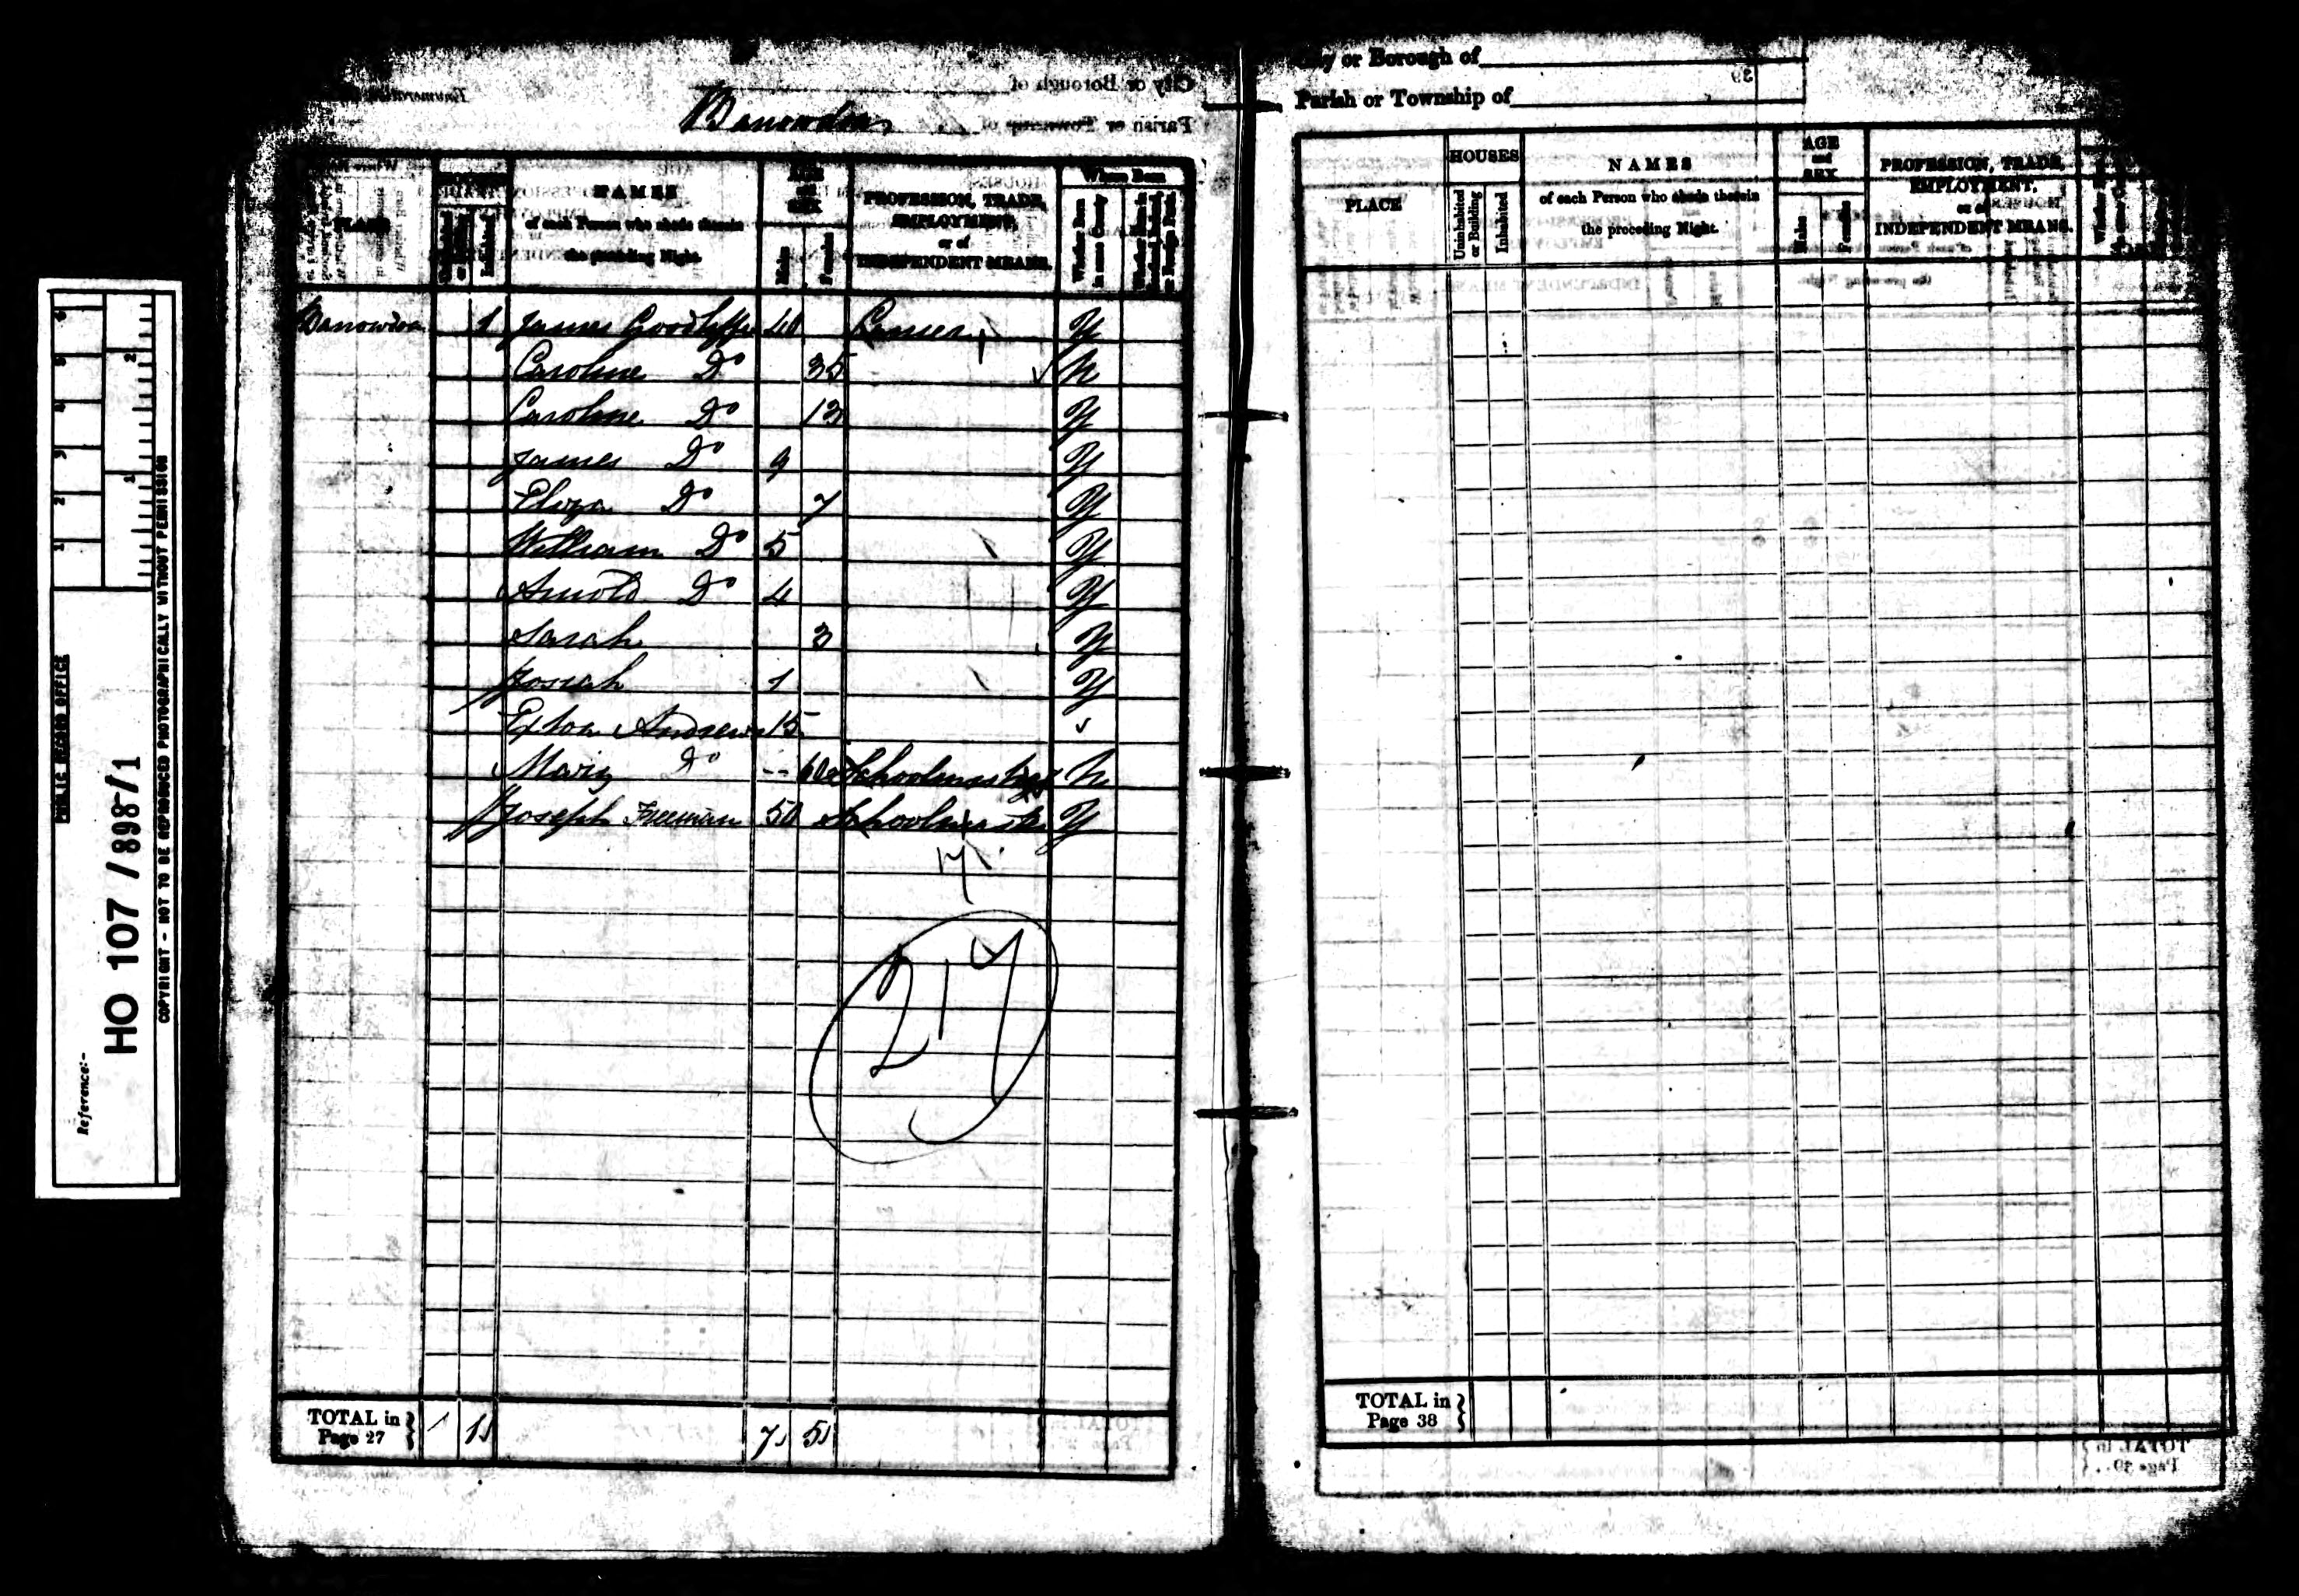 PUBLIC RECORD OFFICE
Reference:-
HO 107 / 898/1
COPYRIGHT - NOT TO BE REPRODUCED PHOTOGRAPHICALLY WITHOUT PERMISSION
1 2 3 4 5 6
1 2
City or Borough of
Parish or Township of
Barrowden
PLACE
HOUSES
Uninhabited or Building
Inhabited
NAMES
of each Person who abode therein
the preceding Night.
AGE and SEX
Males
Females
PROFESSION, TRADE,
EMPLOYMENT,
or of
INDEPENDENT MEANS.
Where Born
Whether Born in same County
Whether Born in Scotland, Ireland, or Foreign Parts.
Barrowden 1 James Goodliffe 40 Y
Caroline Do 35 N
Caroline Do 13 Y
James Do 9 Y
Eliza Do 7 Y
William Do 5 Y
Arnold Do 4 Y
Sarah 3 Y
Josiah 1 Y
Andrew 15
Do -- 60 Schoolmistress N
Joseph Freeman 50 Schoolmaster Y
217
TOTAL in
Page 27
1 1 7 5
City or Borough of
39
Parish or Township of
PLACE
HOUSES
Uninhabited or Building
Inhabited
NAMES
of each Person who abode therein
the preceding Night.
AGE
and
SEX
Males
Females
PROFESSION, TRADE,
EMPLOYMENT,
or of
INDEPENDENT MEANS.
TOTAL in
Page 38
TOTAL in
Page 39